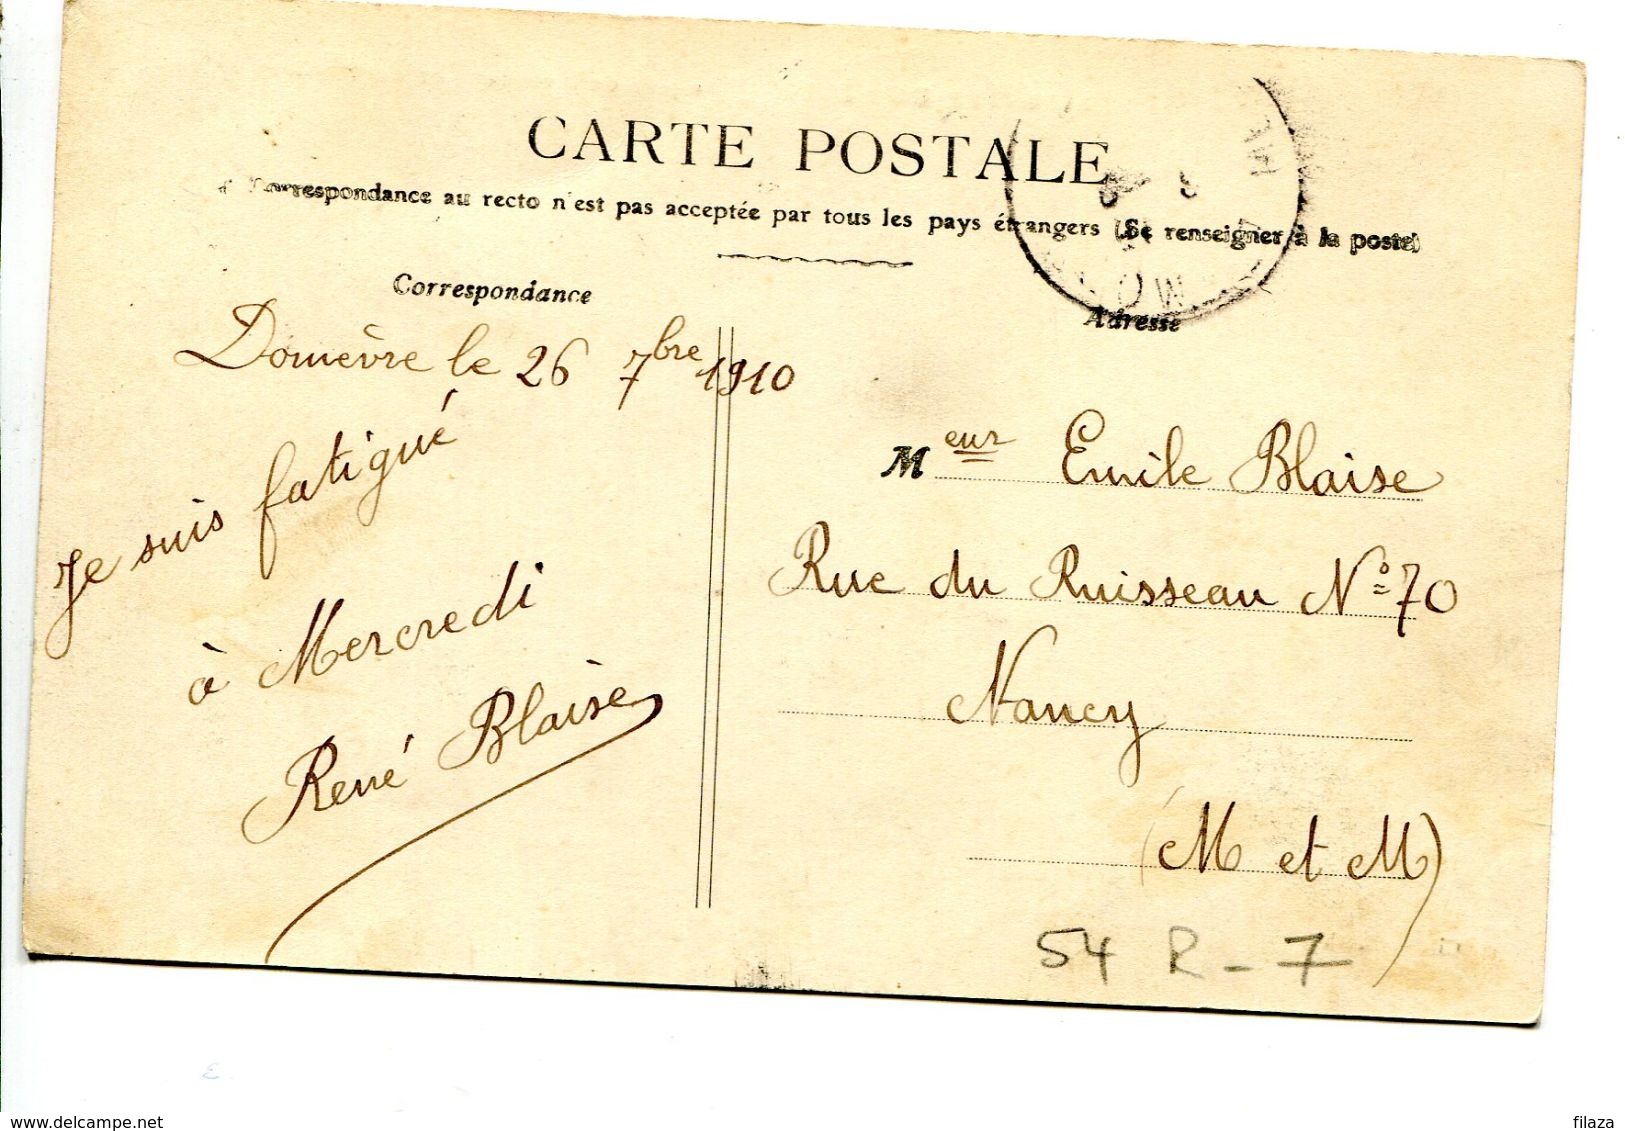 CARTE POSTALE
Correspondance au recto n'est pas acceptée par tous les pays étrangers (Se renseigner à la poste)
Correspondance
Domèvre le 26 7bre 1910
Je suis fatigué
à Mercredi
René Blaise
Adresse
Meur Emile Blaise
Rue du Ruisseau No 70
Nancy
(M et M)
54 R - 7
www.delcampe.net
filaza